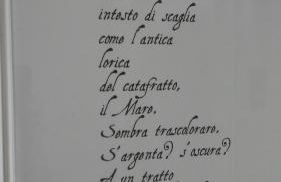 intesto di scaglia
come l'antica
lorica
del catafratto,
il Mare.
Sembra trascolorare.
S'argenta? s'oscura?
A un tratto